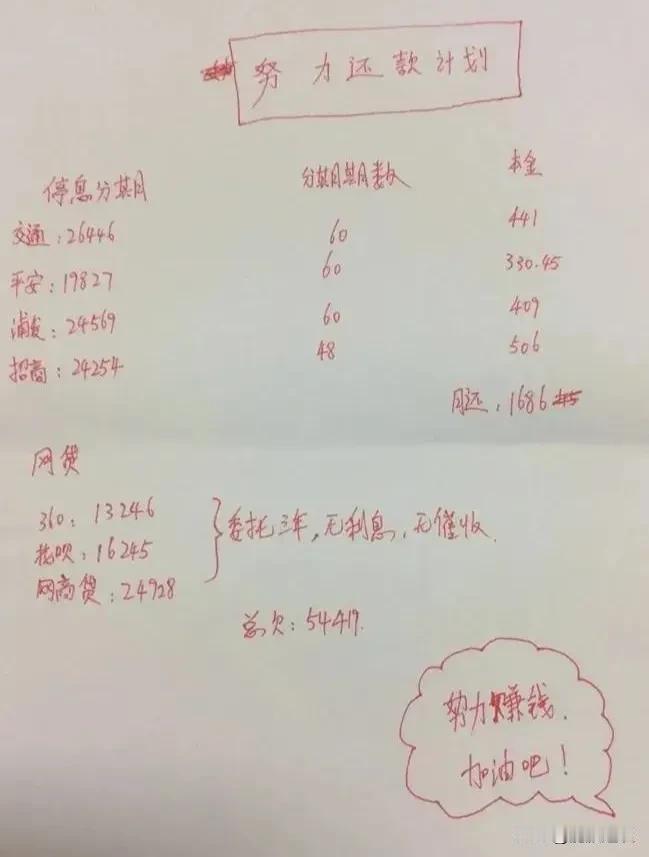 努力还款计划
停息分期 分期期数 本金
交通：26446 60 441
平安：19827 60 330.45
浦发：24569 60 409
招商：24254 48 506
月还：1686
网贷
360：13246
花呗：16245
网商贷：24928
委托三年，无利息，无催收.
总欠：54419.
努力赚钱，
加油吧！